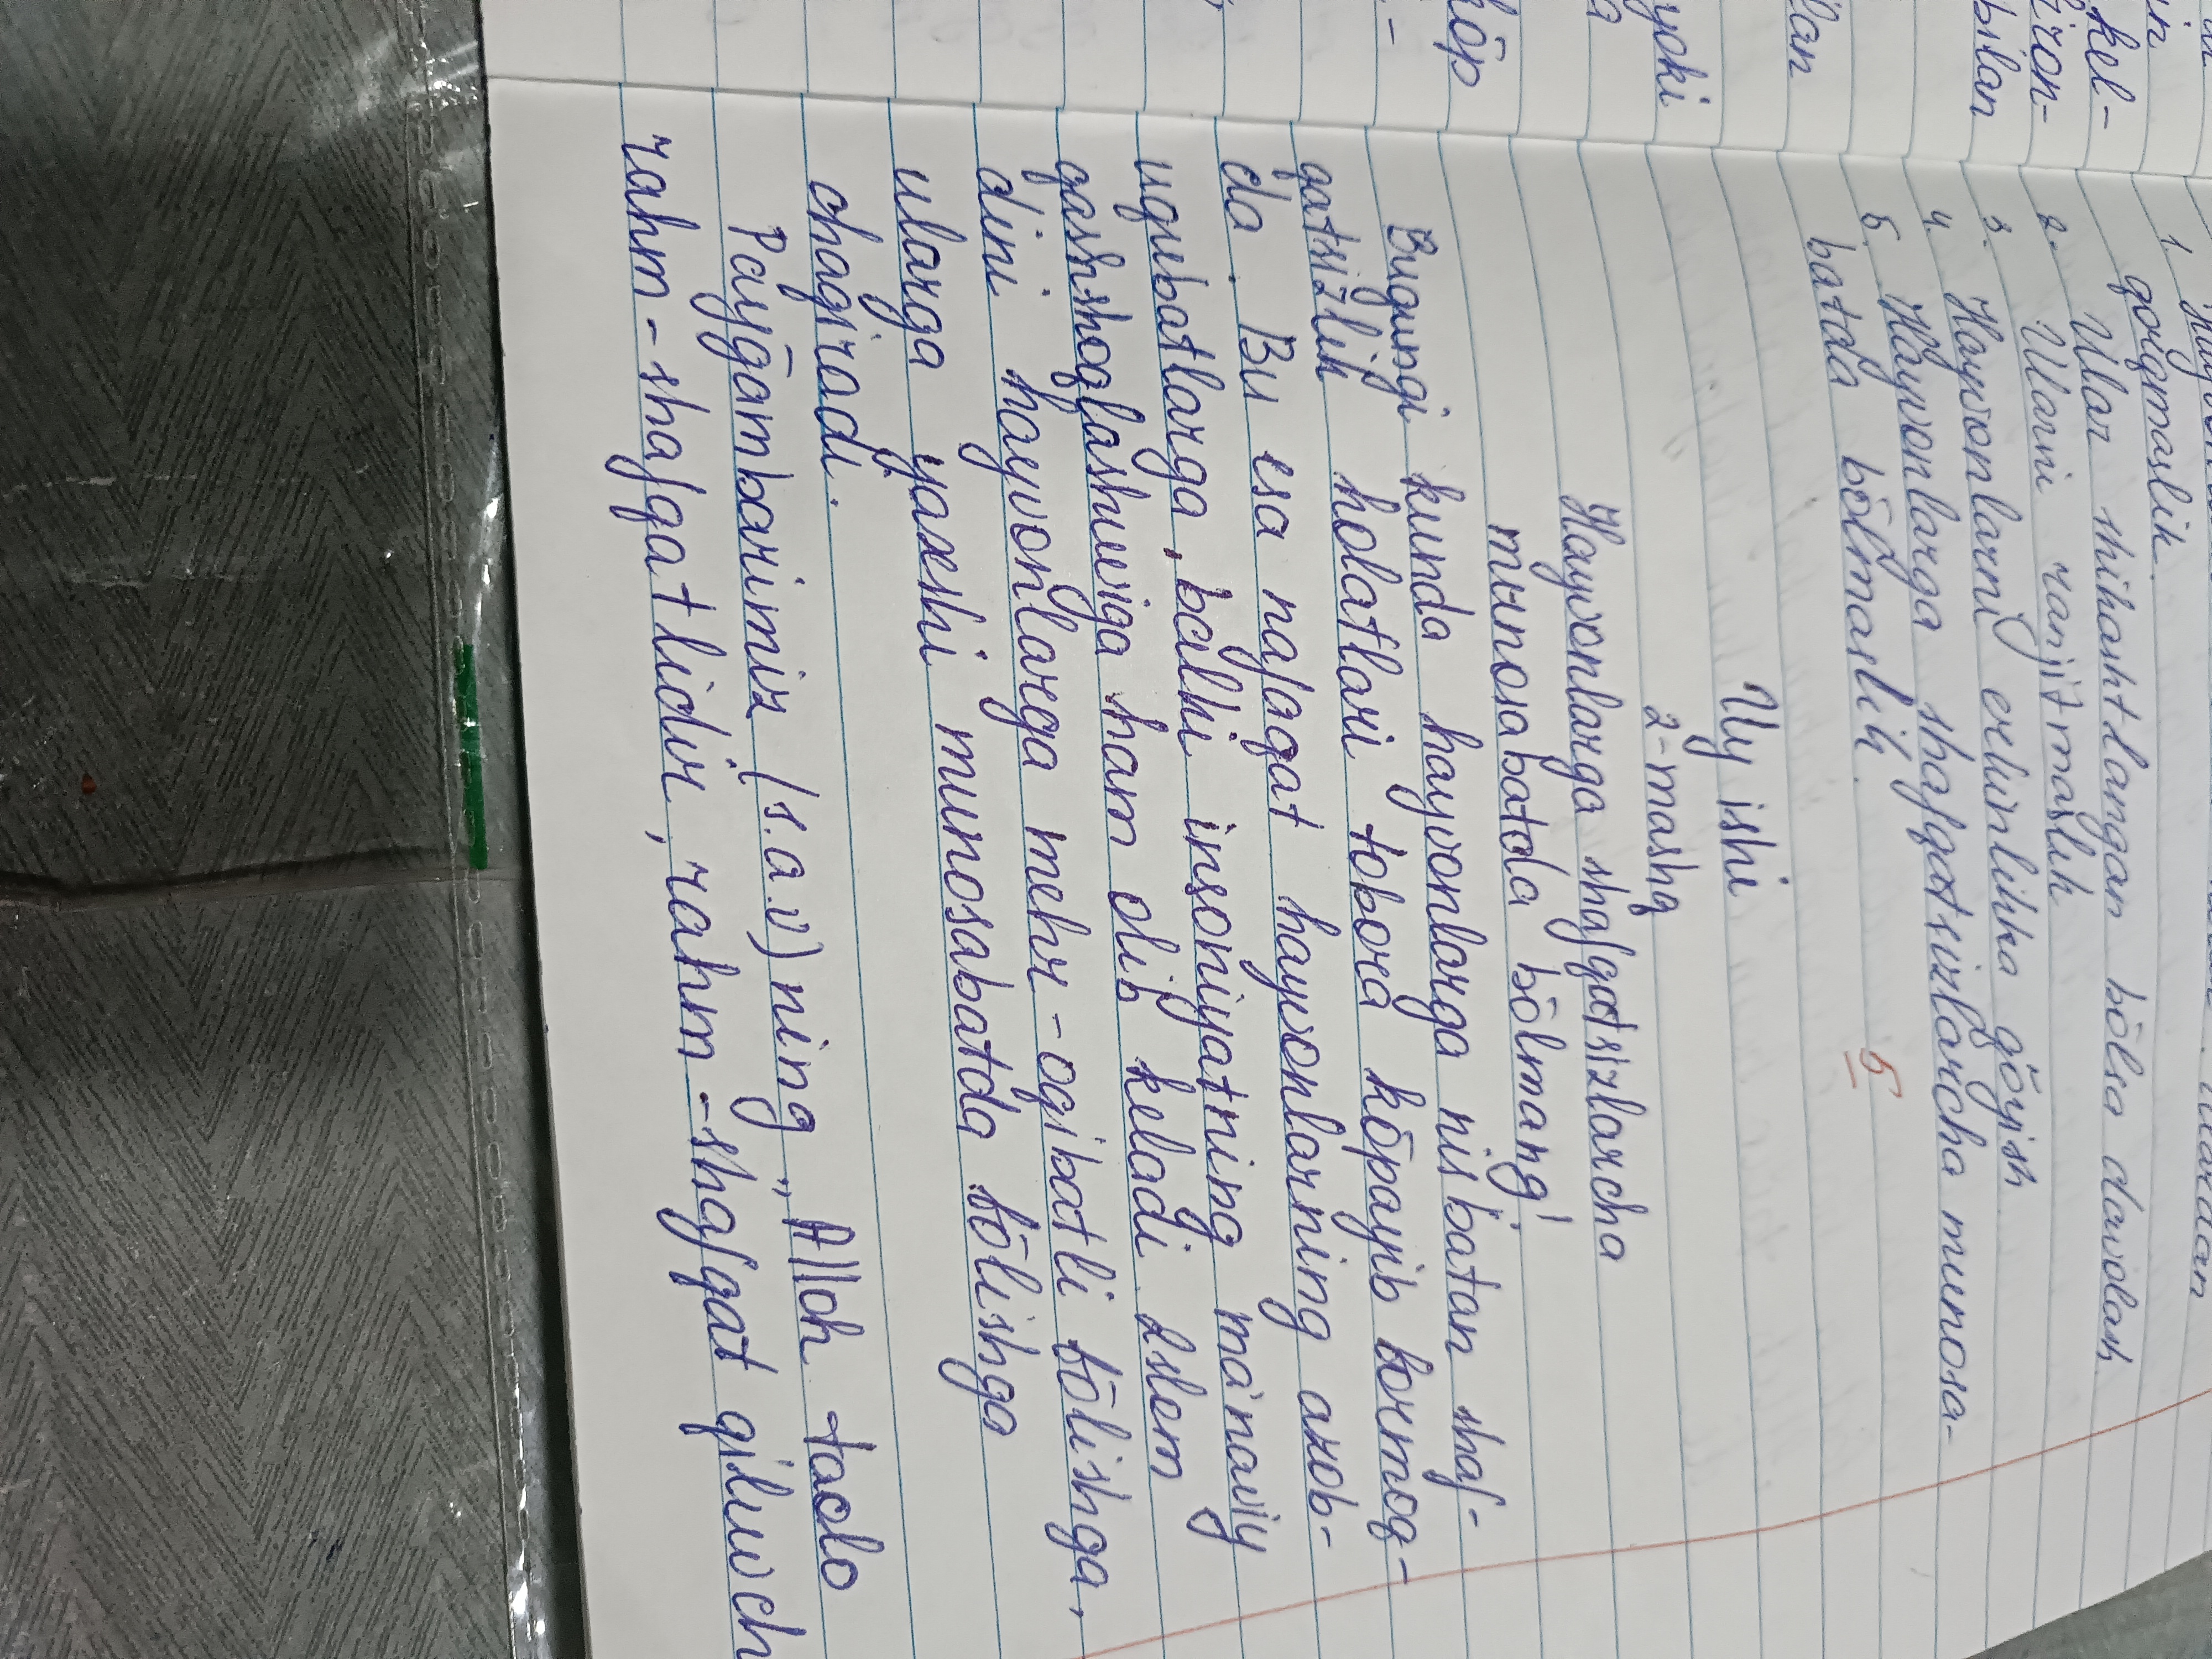 qoqmaslik.
2. Ular shikastlangan bōlsa davolash
3. Ularni ranjitmaslik
4. Hayvonlarni erkinlikka qōyish
5. Hayvonlarga shafqatsizlarcha munosa-
batda bōlmaslik.
5
Uy ishi
2-mashq
Hayvonlarga shafqatsizlarcha
munosabatda bōlmang!
Bugungi kunda hayvonlarga nisbatan shaf-
qatsizlik holatlari tobora kōpayib bormoq-
da. Bu esa nafaqat hayvonlarning axob-
uqubatlarga, balki insoniyatning ma'naviy
qashshoqlashuviga ham olib keladi. Islom
dini hayvonlarga mehr-oqibatli bōlishga,
ularga yaxshi munosabatda bōlishga
chaqiradi.
Payḡambarimiz (s.a.v) ning „Alloh taolo
rahm-shafqatlidir, rahm-shafqat qiluvch
kel-
bilan
ilan
yoki
a
hōp